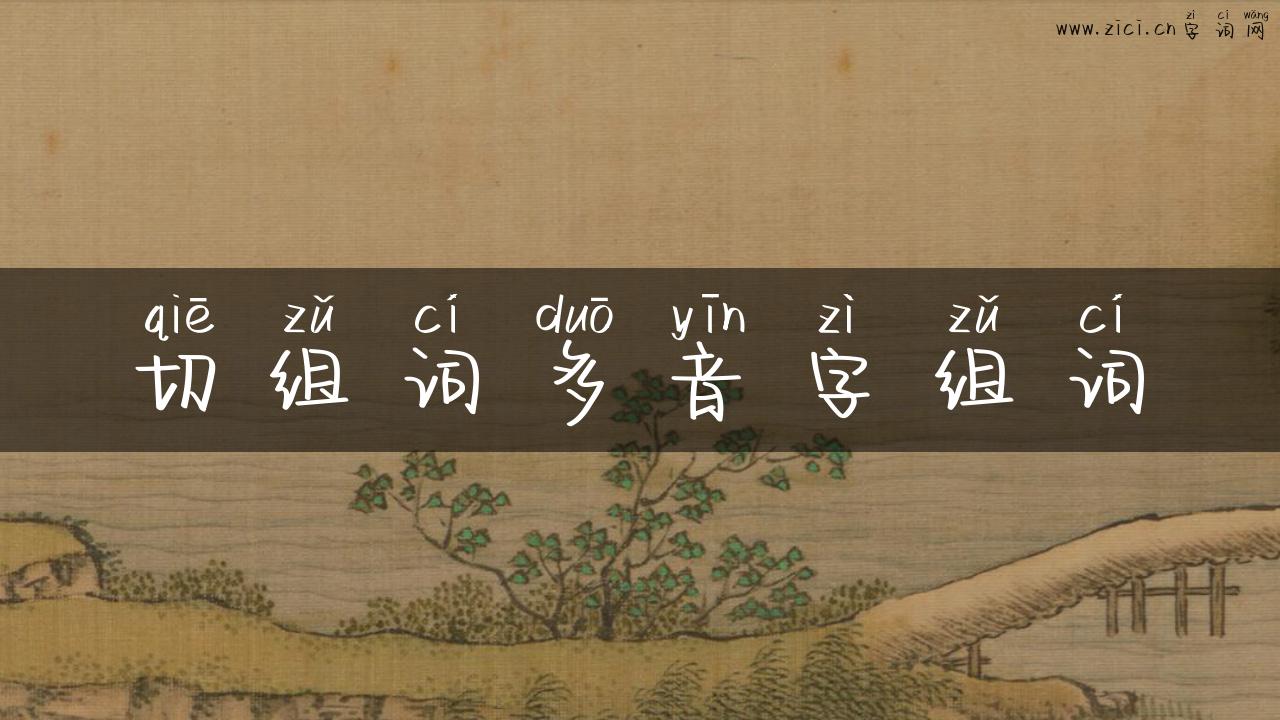 zì cí wǎng
www.zici.cn 字词网
qiē zǔ cí duō yīn zì zǔ cí
切组词多音字组词